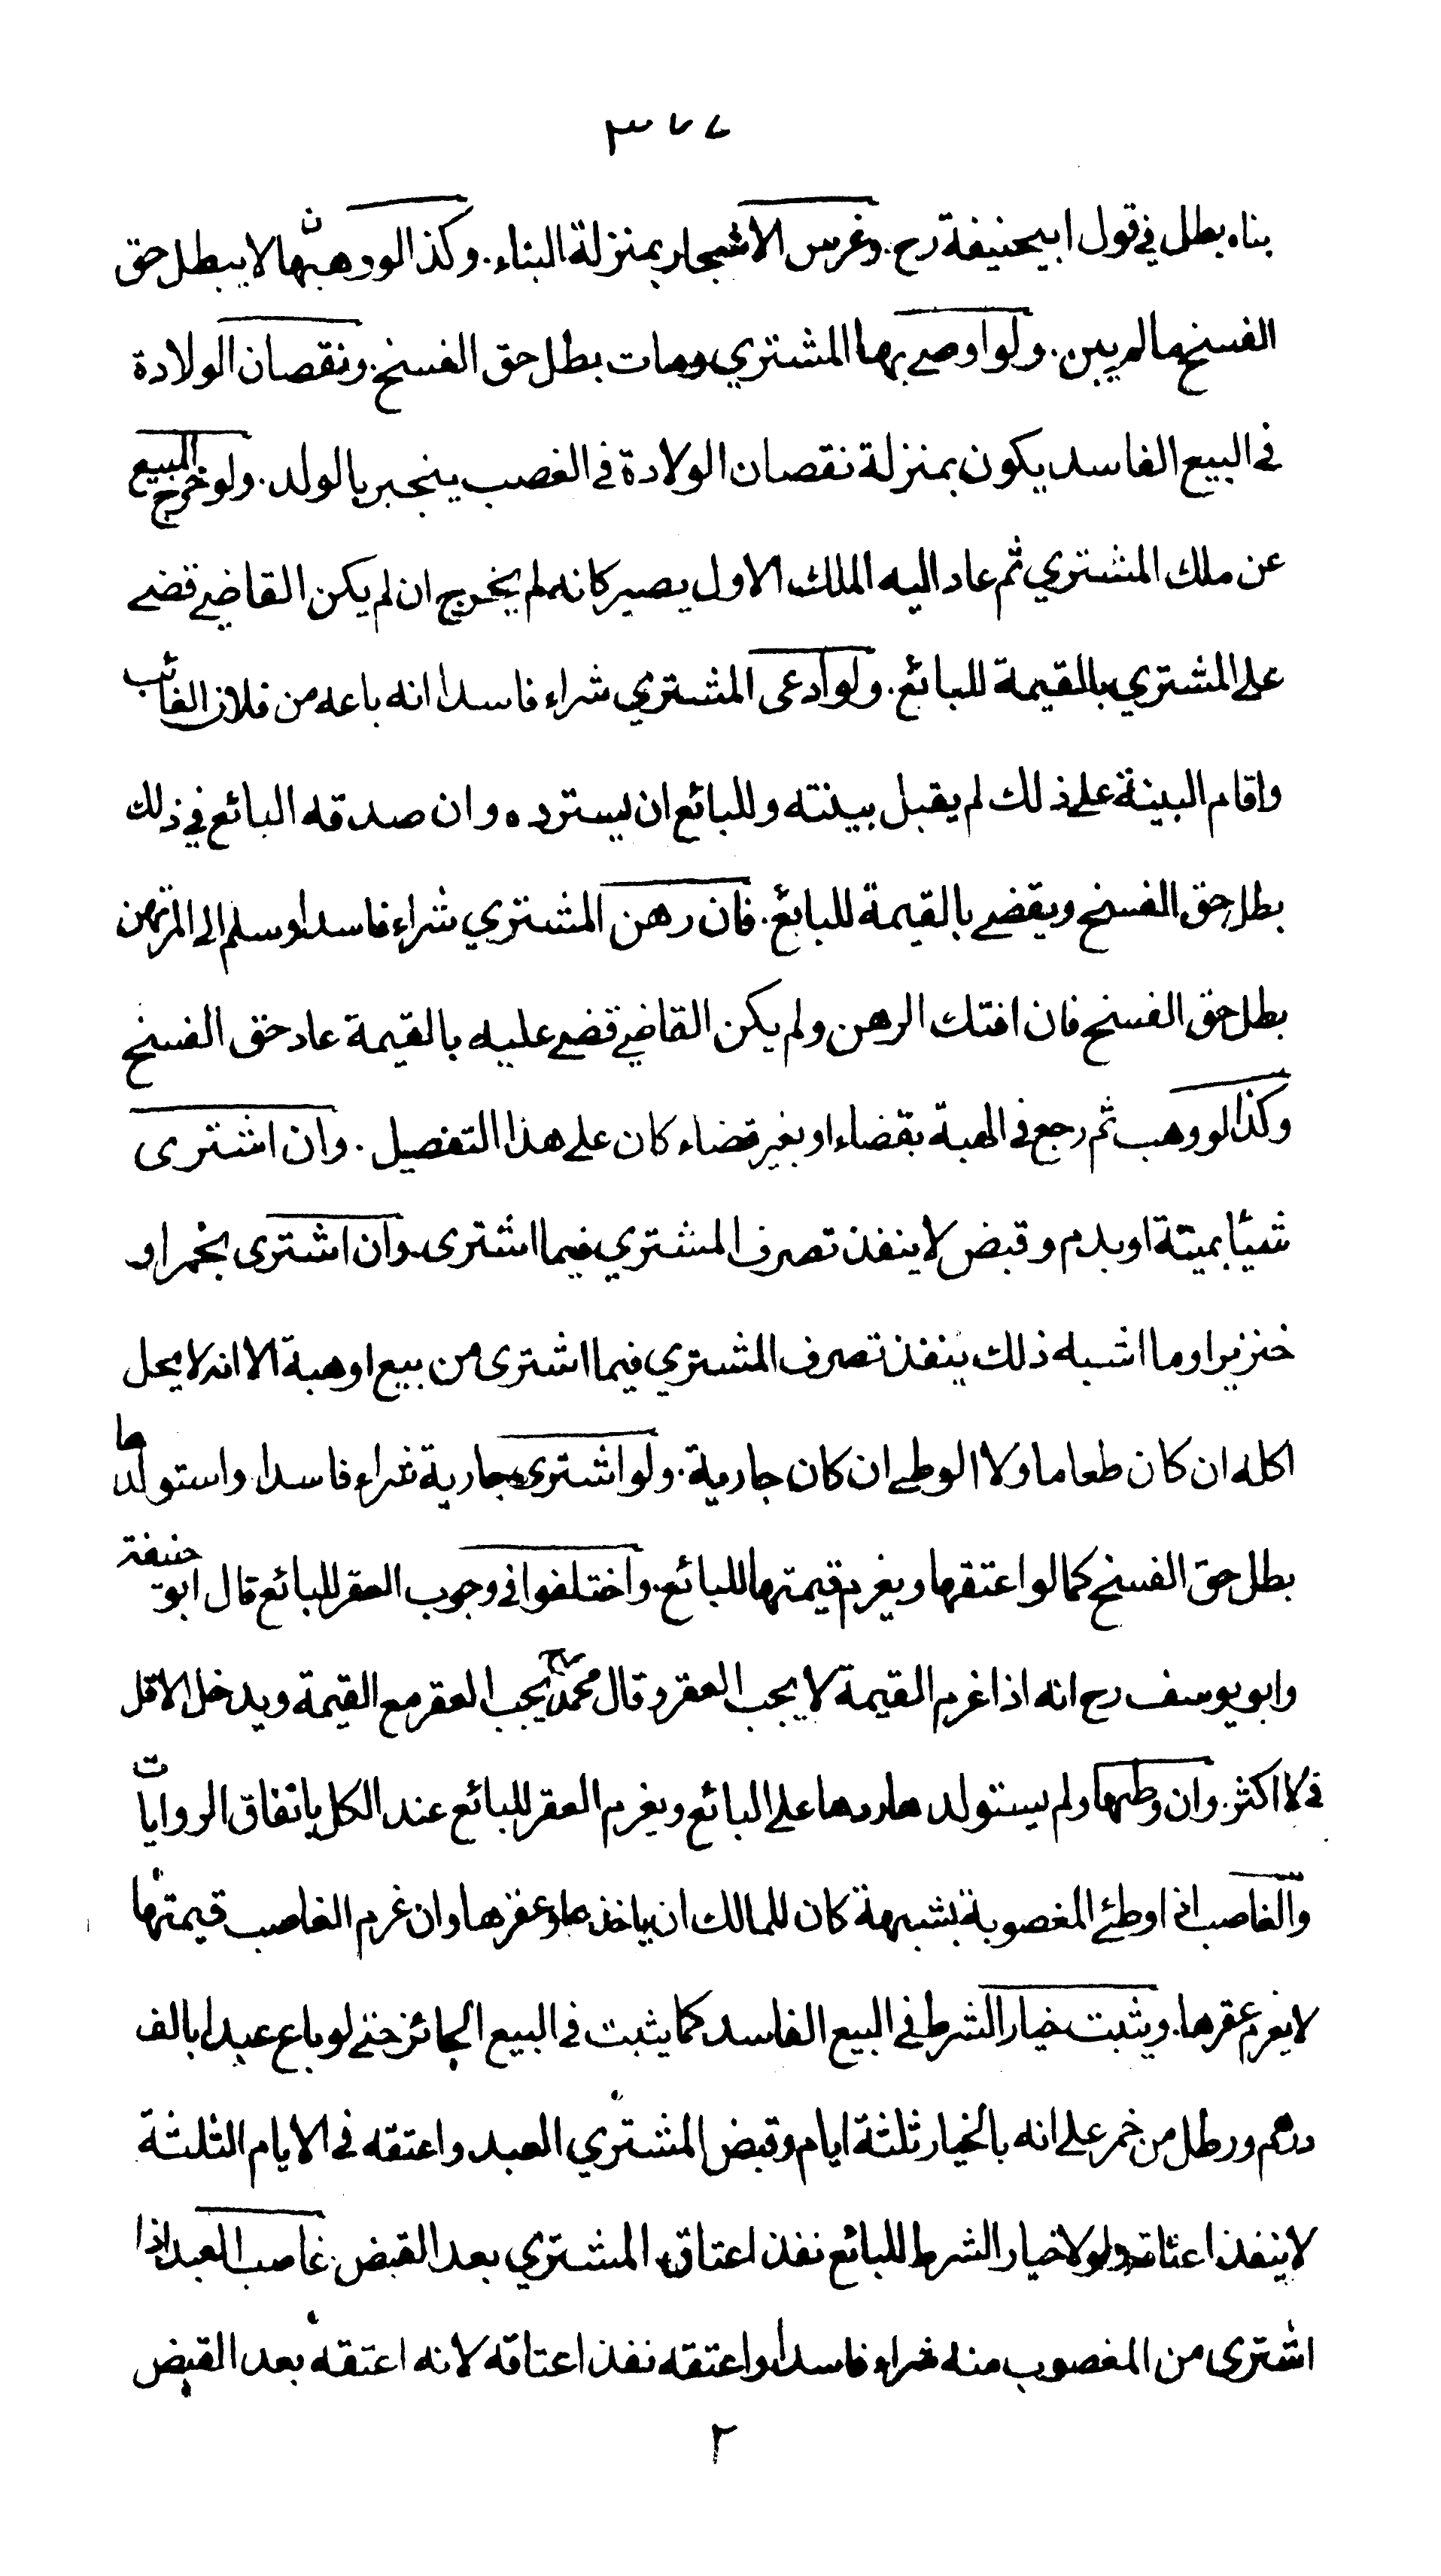 ٣٧٧
بناه بطل في قول ابيحنيفة رح. وغرس الاشجار بمنزلة البناء. وكذا لو وهبها لا يبطل حق
الفسخ مالم يبن. ولو اوصى بها المشتري ومات بطل حق الفسخ. ونقصان الولادة
في البيع الفاسد يكون بمنزلة نقصان الولادة في الغصب ينجبر بالولد. ولو خرج المبيع
عن ملك المشتري ثم عاد اليه الملك الاول يصير كانه لم يخرج ان لم يكن القاضي قضى
على المشتري بالقيمة للبائع. ولو ادعى المشتري شراء فاسدا انه باعه من فلان الغائب
واقام البينة على ذلك لم يقبل بينته وللبائع ان يسترده وان صدقه البائع في ذلك
بطل حق الفسخ ويقضى بالقيمة للبائع. فان رهن المشتري شراء فاسدا وسلم الى المرتهن
بطل حق الفسخ فان افتك الرهن ولم يكن القاضي قضى عليه بالقيمة عاد حق الفسخ
وكذا لو وهب ثم رجع في الهبة بقضاء او بغير قضاء كان على هذا التفصيل. وان اشترى
شيئا بميتة او بدم وقبض لا ينفذ تصرف المشتري فيما اشترى. وان اشترى بخمر او
خنزير او ما اشبه ذلك ينفذ تصرف المشتري فيما اشترى من بيع او هبة الا انه لا يحل
اكله ان كان طعاما ولا الوطى ان كان جارية. ولو اشترى جارية شراء فاسدا. واستولدها
بطل حق الفسخ كما لو اعتقها ويغرم قيمتها للبائع. واختلفوا في وجوب العقر للبائع قال ابو حنيفة
وابو يوسف رح انه اذا غرم القيمة لا يجب العقر وقال محمد رح يجب العقر مع القيمة ويدخل الاقل
في لاكثر. وان وطئها ولم يستولدها ردها على البائع ويغرم العقر للبائع عند الكل باتفاق الروايات
والغاصب اذا وطئ المغصوبة بشبهة كان للمالك ان ياخذها وعقرها وان غرم الغاصب قيمتها
لا يغرم عقرها. ويثبت خيار الشرط في البيع الفاسد كما يثبت في البيع الجائز حتى لو باع عبدا بالف
درهم ورطل من خمر على انه بالخيار ثلثة ايام وقبض المشتري العبد واعتقه في الايام الثلثة
لا ينفذ اعتاقه ولولا خيار الشرط للبائع نفذ اعتاق المشتري بعد القبض. غاصب العبد اذا
اشترى من المغصوب منه شراء فاسدا واعتقه نفذ اعتاقه لانه اعتقه بعد القبض
٢